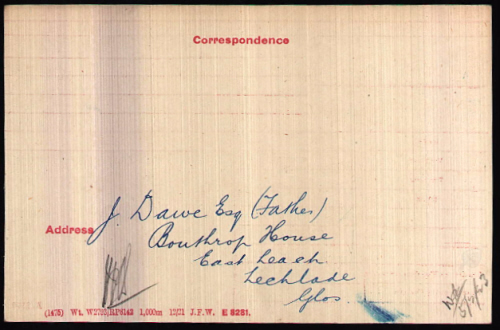 Correspondence
J. Dawe Esq (Father)
Address
Bouthrop House
East Leach
Lechlade
Glos.
(1475) Wt. W2732/RP6143 1,000m 12/21 J.F.W. E 8281.